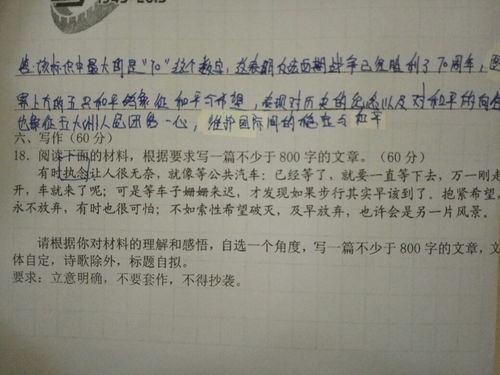 1945-2015
答:该标识中最大的是"70"这个数字,这表明反法西斯战争已经胜利了70周年,
界上方的了只和平鸽象征和平与希望,表现对历史的
也象征五大洲人民团结一心,维护国际间的稳定与和平
六、写作(60 分)
18. 阅读下面的材料,根据要求写一篇不少于 800 字的文章。(60 分)
有时执念让人很无奈,就像等公共汽车:已经等了,就要一直等下去,万一刚走
开,车就来了呢;可是等车子姗姗来迟,才发现如果步行其实早该到了。抱紧希望,
永不放弃,有时也很可怕;不如索性希望破灭,及早放弃,也许会是另一片风景。
请根据你对材料的理解和感悟,自选一个角度,写一篇不少于 800 字的文章,文
体自定,诗歌除外,标题自拟。
要求:立意明确,不要套作,不得抄袭。